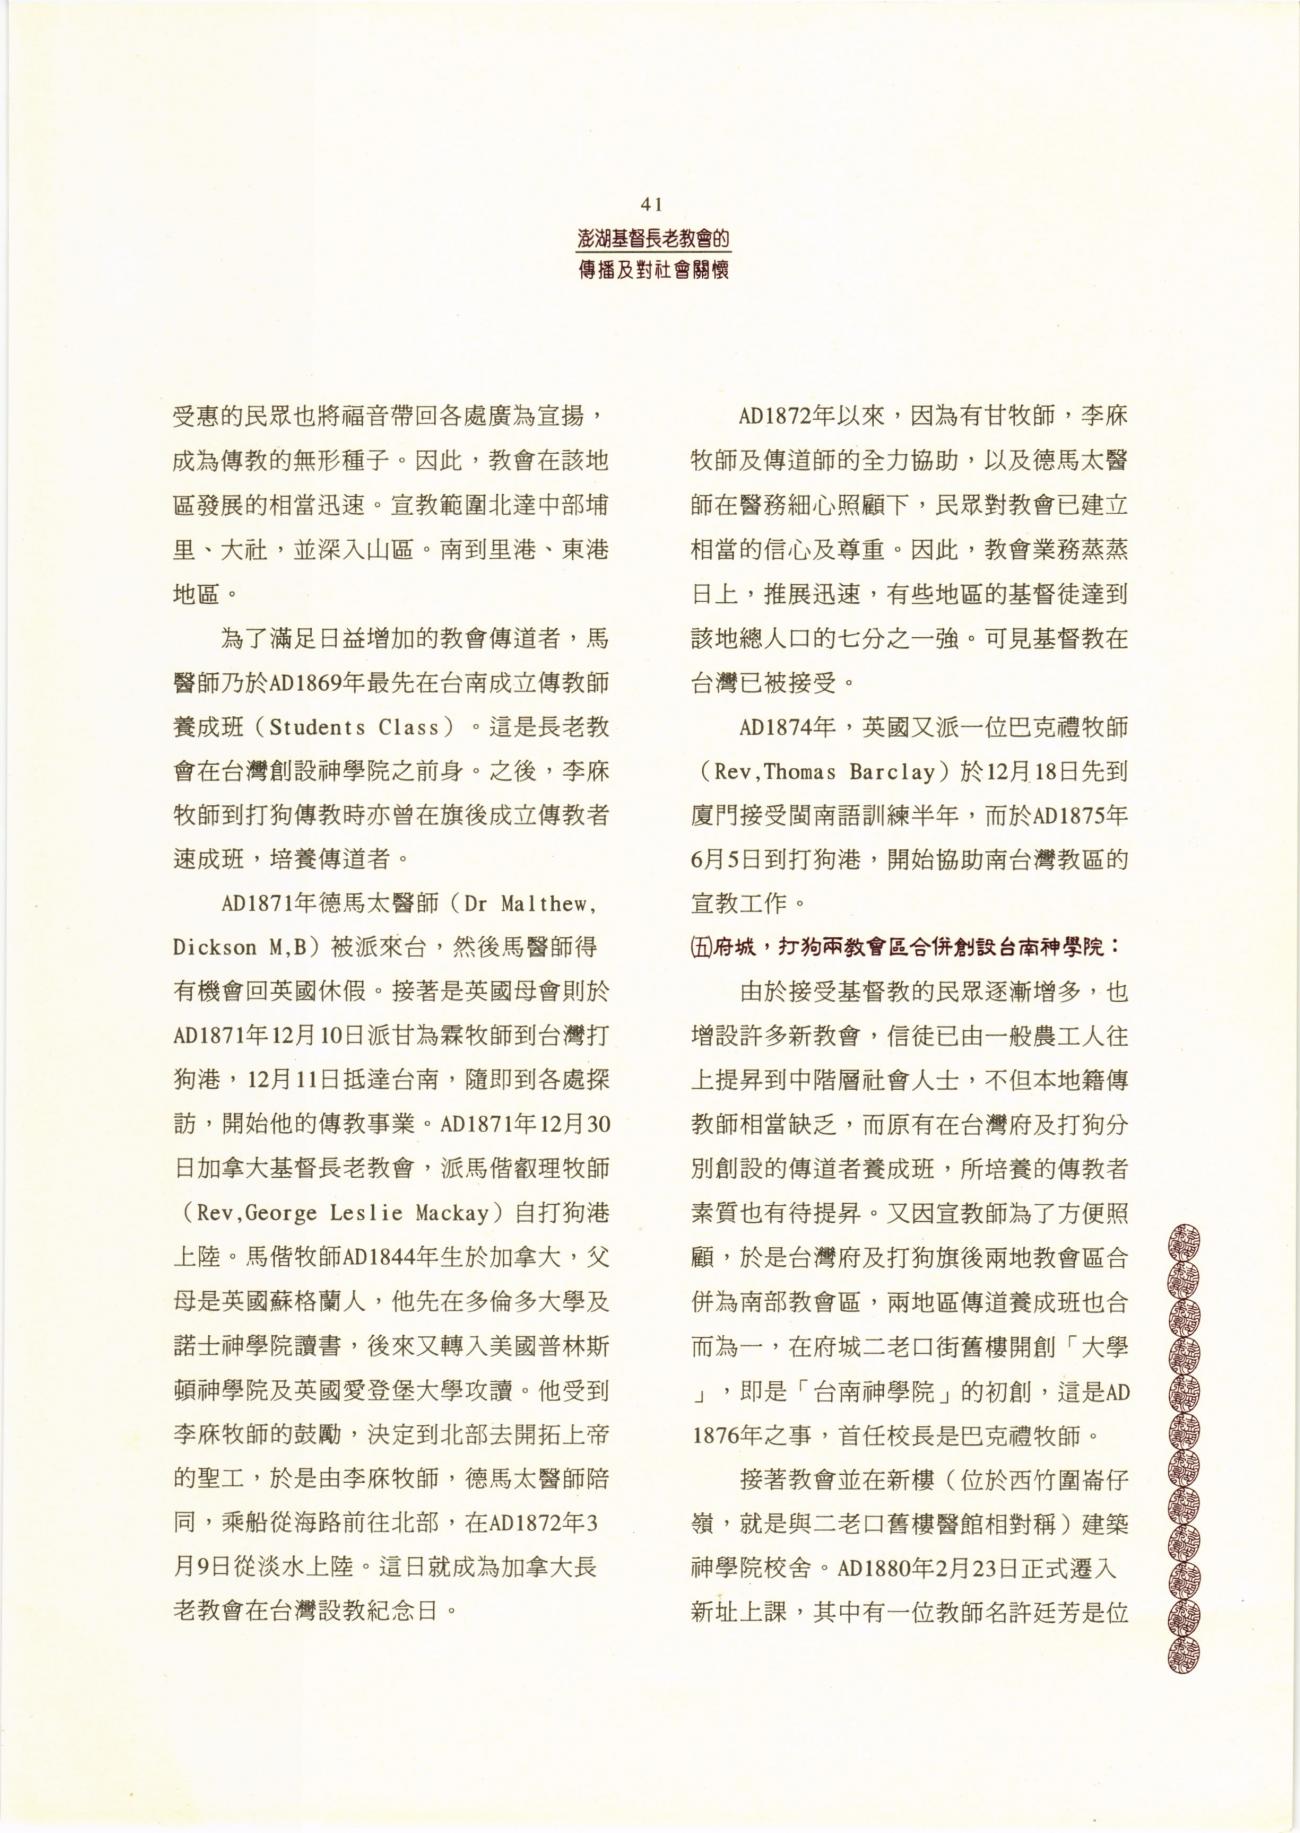 41
澎湖基督長老教會的
傳播及對社會關懷
受惠的民眾也將福音帶回各處廣為宣揚，
成為傳教的無形種子。因此，教會在該地
區發展的相當迅速。宣教範圍北達中部埔
里、大社，並深入山區。南到里港、東港
地區。
為了滿足日益增加的教會傳道者，馬
醫師乃於AD1869年最先在台南成立傳教師
養成班（Students Class）。這是長老教
會在台灣創設神學院之前身。之後，李庥
牧師到打狗傳教時亦曾在旗後成立傳教者
速成班，培養傳道者。
AD1871年德馬太醫師（Dr Malthew,
Dickson M,B）被派來台，然後馬醫師得
有機會回英國休假。接著是英國母會則於
AD1871年12月10日派甘為霖牧師到台灣打
狗港，12月11日抵達台南，隨即到各處探
訪，開始他的傳教事業。AD1871年12月30
日加拿大基督長老教會，派馬偕叡理牧師
（Rev,George Leslie Mackay）自打狗港
上陸。馬偕牧師AD1844年生於加拿大，父
母是英國蘇格蘭人，他先在多倫多大學及
諾士神學院讀書，後來又轉入美國普林斯
頓神學院及英國愛登堡大學攻讀。他受到
李庥牧師的鼓勵，決定到北部去開拓上帝
的聖工，於是由李庥牧師，德馬太醫師陪
同，乘船從海路前往北部，在AD1872年3
月9日從淡水上陸。這日就成為加拿大長
老教會在台灣設教紀念日。
AD1872年以來，因為有甘牧師，李庥
牧師及傳道師的全力協助，以及德馬太醫
師在醫務細心照顧下，民眾對教會已建立
相當的信心及尊重。因此，教會業務蒸蒸
日上，推展迅速，有些地區的基督徒達到
該地總人口的七分之一強。可見基督教在
台灣已被接受。
AD1874年，英國又派一位巴克禮牧師
（Rev,Thomas Barclay）於12月18日先到
廈門接受閩南語訓練半年，而於AD1875年
6月5日到打狗港，開始協助南台灣教區的
宣教工作。
㈤府城，打狗兩教會區合併創設台南神學院：
由於接受基督教的民眾逐漸增多，也
增設許多新教會，信徒已由一般農工人往
上提昇到中階層社會人士，不但本地籍傳
教師相當缺乏，而原有在台灣府及打狗分
別創設的傳道者養成班，所培養的傳教者
素質也有待提昇。又因宣教師為了方便照
顧，於是台灣府及打狗旗後兩地教會區合
併為南部教會區，兩地區傳道養成班也合
而為一，在府城二老口街舊樓開創「大學
」，即是「台南神學院」的初創，這是AD
1876年之事，首任校長是巴克禮牧師。
接著教會並在新樓（位於西竹圍崙仔
嶺，就是與二老口舊樓醫館相對稱）建築
神學院校舍。AD1880年2月23日正式遷入
新址上課，其中有一位教師名許廷芳是位